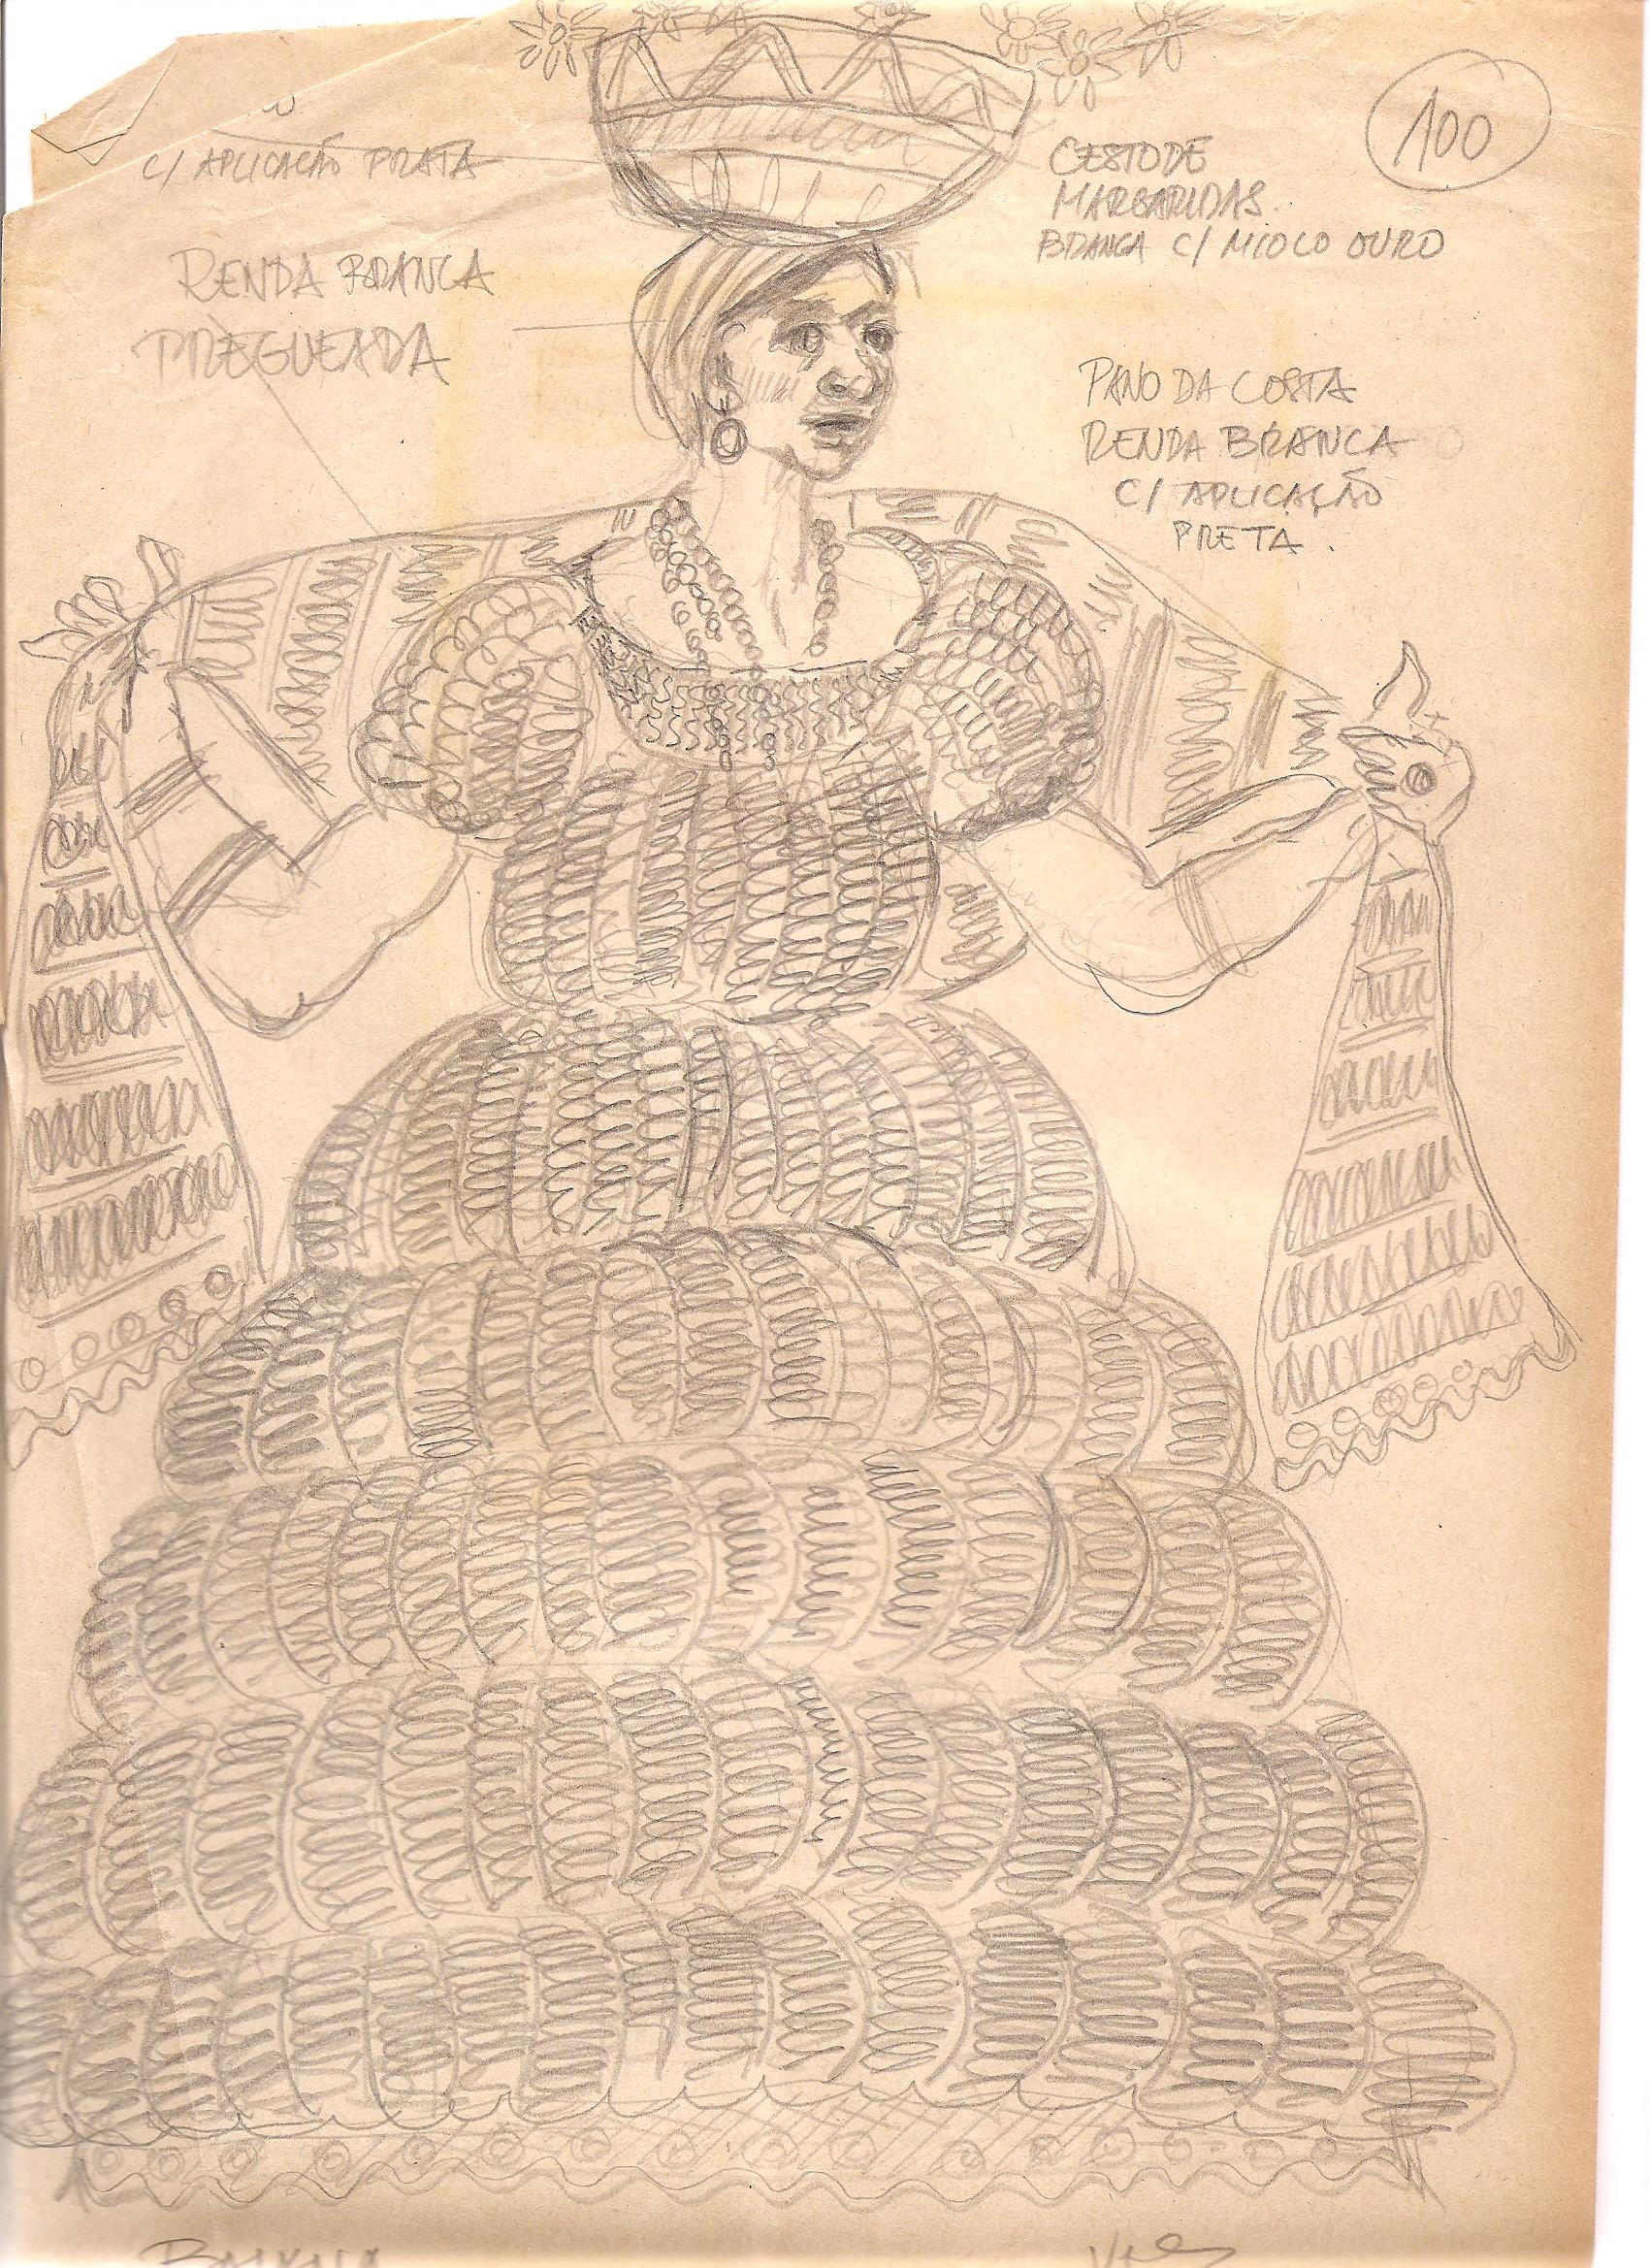 100
C/ APLICAÇÃO PRATA
RENDA BRANCA
PREGUEADA
CESTO DE
MARGARIDAS.
BRANCA C/ MIOLO OURO
PANO DA COSTA
RENDA BRANCA
C/ APLICAÇÃO
PRETA.